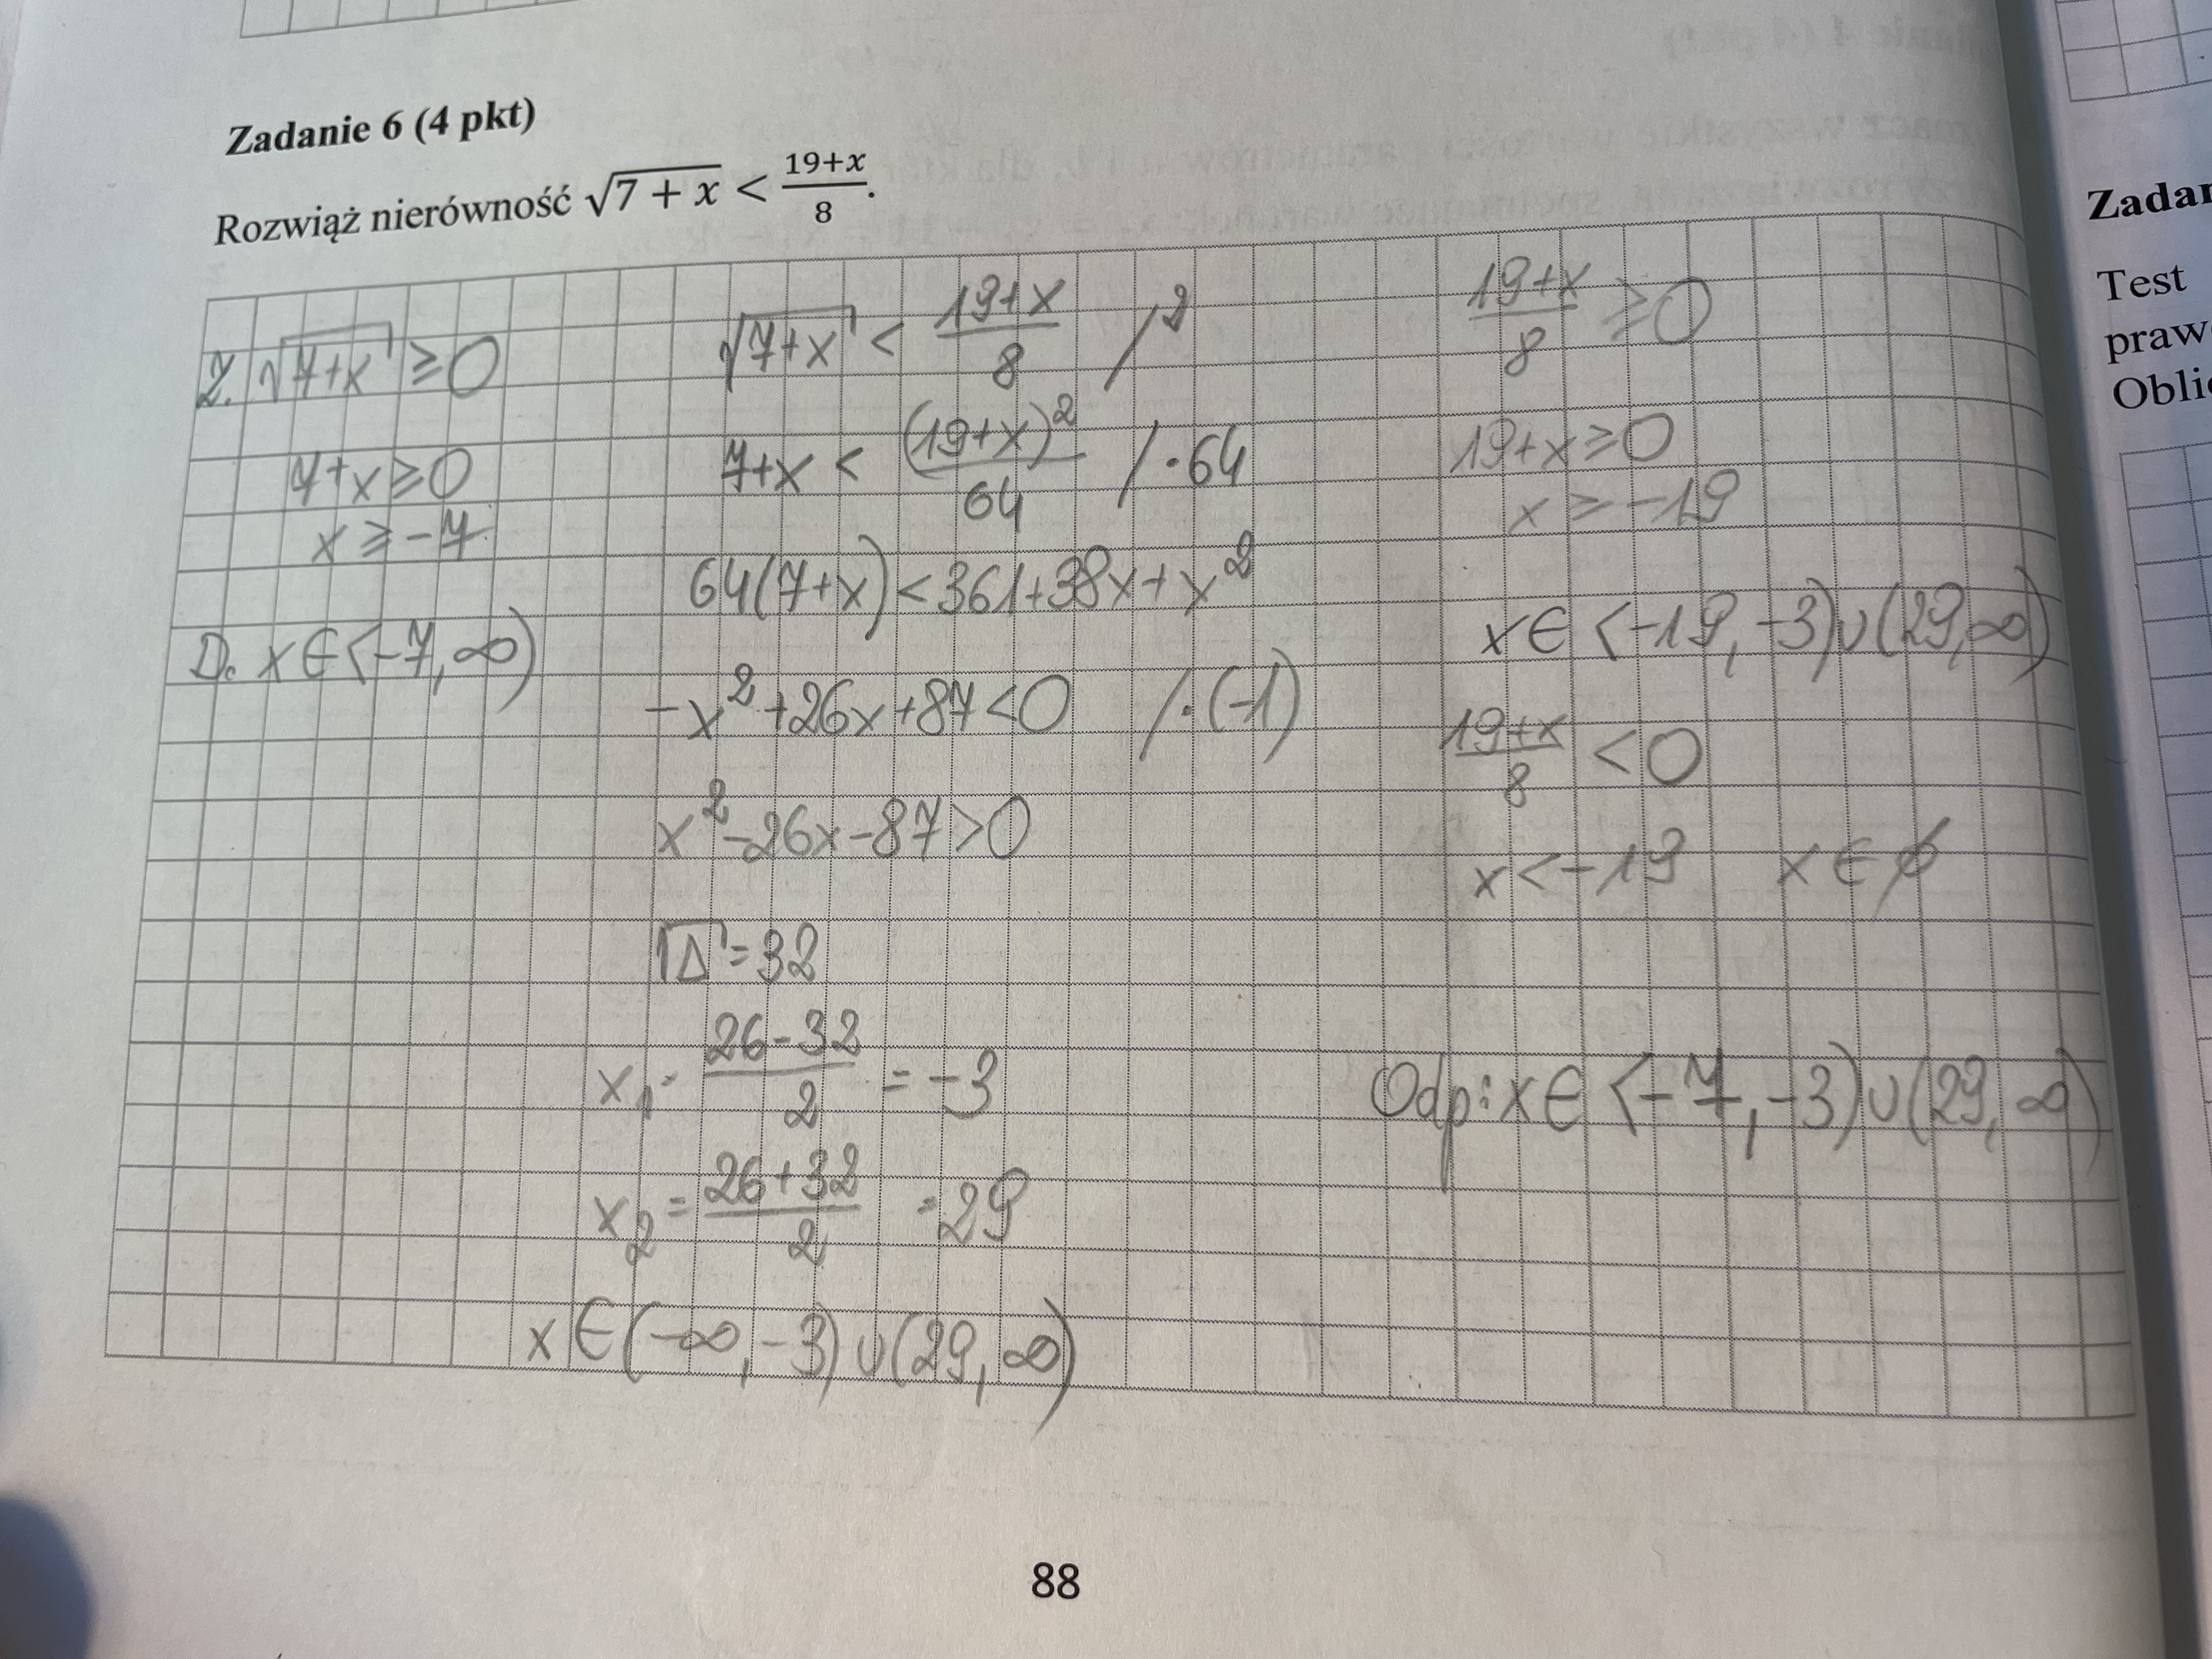 Zadanie 6 (4 pkt)
Rozwiąż nierówność √7 + x < 19+x/8.
Z. √7+x ≥ 0
7+x ≥ 0
x ≥ -7
D. x ∈ <-7, ∞)
√7+x < 19+x/8 /²
7+x < (19+x)²/64 / · 64
64(7+x) < 361+38x+x²
-x²+26x+87<0 / · (-1)
x²-26x-87>0
√Δ = 32
x₁ = 26-32/2 = -3
x₂ = 26+32/2 = 29
x ∈ (-∞, -3) ∪ (29, ∞)
19+x/8 ≥ 0
19+x ≥ 0
x ≥ -19
x ∈ <-19, -3) ∪ (29, ∞)
19+x/8 < 0
x < -19 x ∈ ∅
Odp: x ∈ <-7, -3) ∪ (29, ∞)
88
Test